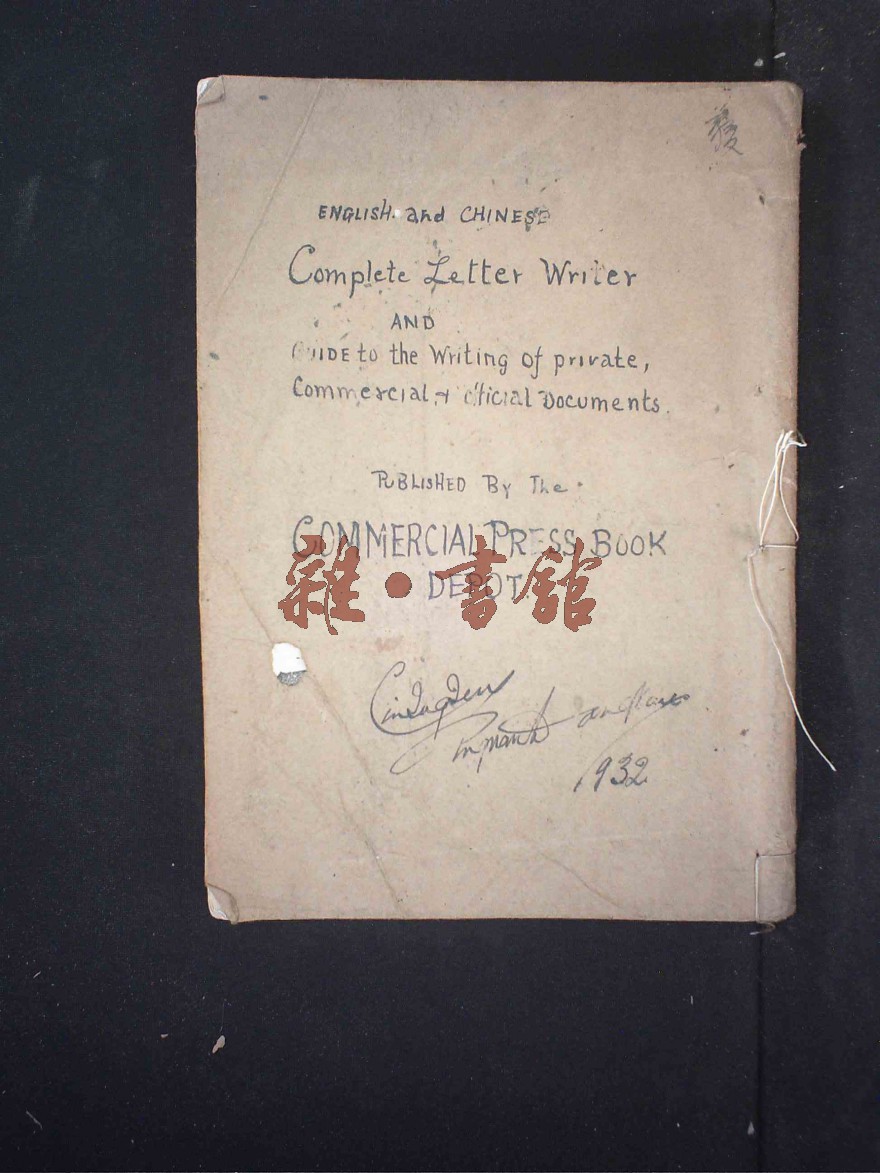 ENGLISH and CHINESE
Complete Letter Writer
AND
GUIDE to the Writing of private,
Commercial & official Documents.
PUBLISHED By The
COMMERCIAL PRESS BOOK
DEPOT
雜•書館
1932